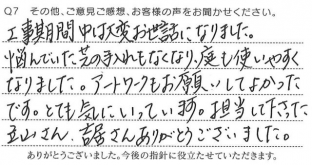 Q7 その他、ご意見ご感想、お客様の声をお聞かせください。
工事期間中は大変お世話になりました。
悩んでいた芝の手入れもなくなり、庭も使いやすく
なりました。アートワークもお願いしてよかった
です。とても気にいっています。担当して下さった
さん、さんありがとうございました。
ありがとうございました。今後の指針に役立たせていただきます。